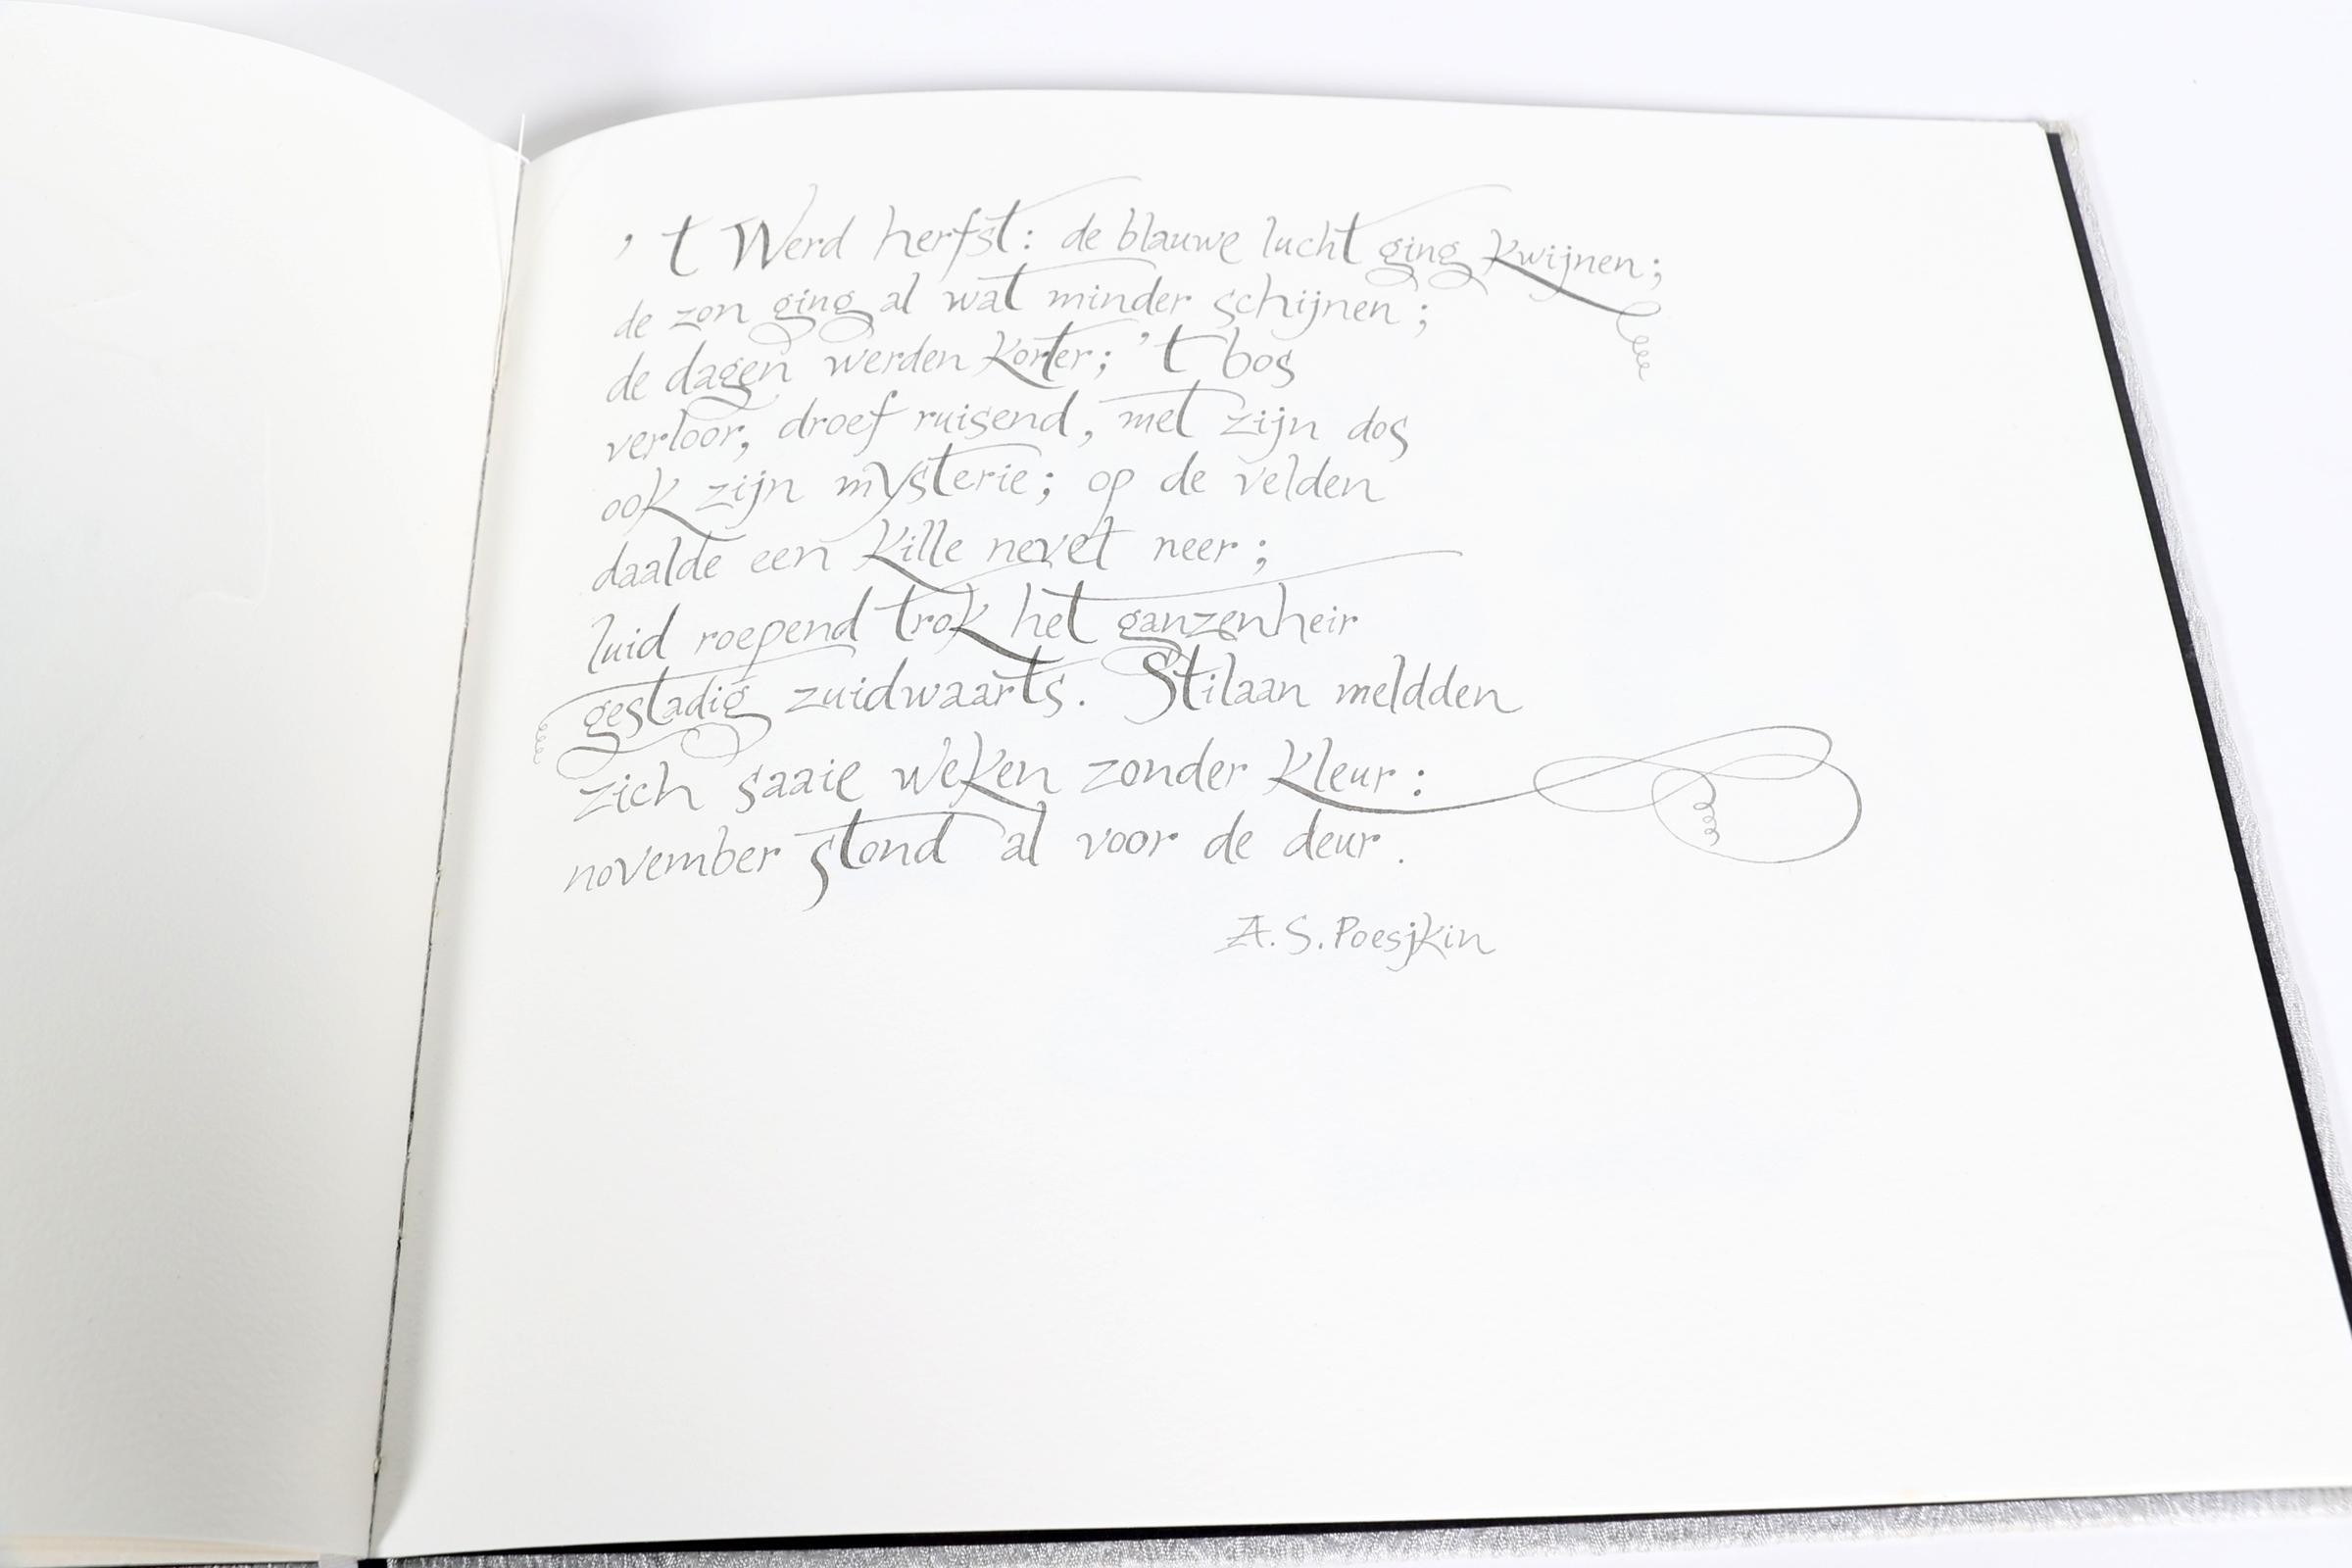 't Werd herfst: de blauwe lucht ging kwijnen;
de zon ging al wat minder schijnen;
de dagen werden korter; 't bos
verloor, droef ruisend, met zijn dos
ook zijn mysterie; op de velden
daalde een kille nevel neer;
luid roepend trok het ganzenheir
gestadig zuidwaarts. Stilaan meldden
zich saaie weken zonder kleur:
november stond al voor de deur.
A.S. Poesjkin